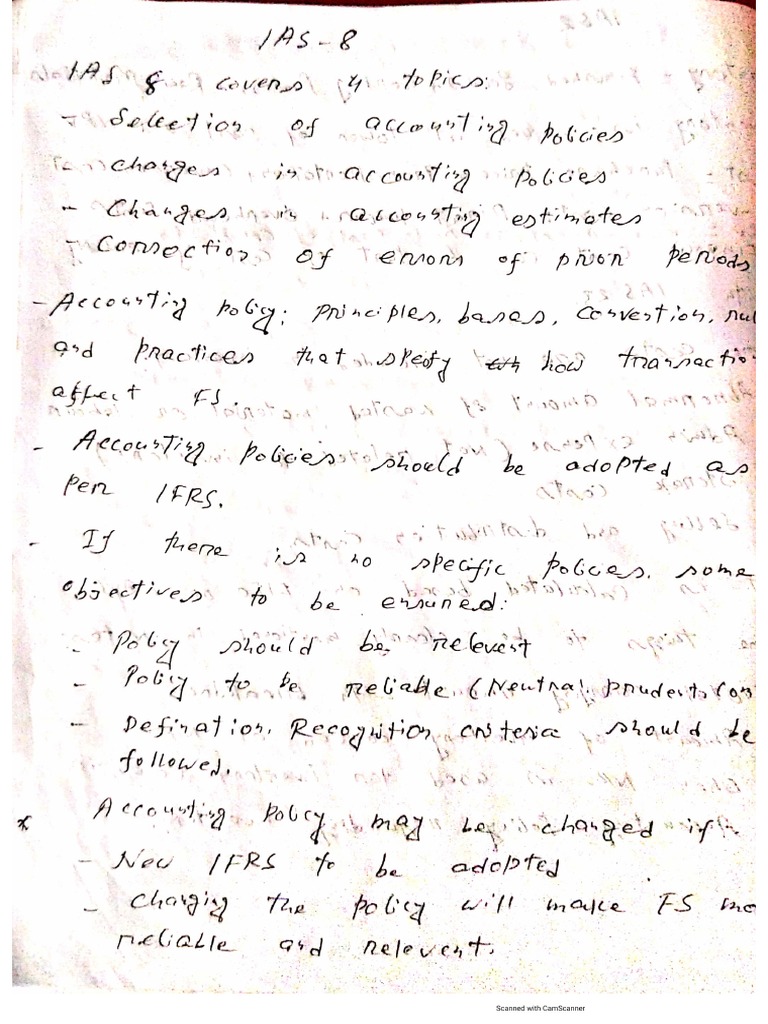 IAS - 8
IAS 8 covers 4 topics:
- Selection of accounting policies
- Changes in accounting policies
- Changes in accounting estimates
- Correction of errors of prior periods
- Accounting policy: principles, bases, convention, rul
and practices that spesfy how transactio
affect FS.
- Accounting policies should be adopted as
per IFRS.
- If there is no specific policies, some
objectives to be ensured:
- Policy should be relevent
- Policy to be reliable (Neutral, prudent, con
- Defination, Recognition criteria should be
followed.
* Accounting policy may be changed if
- New IFRS to be adopted
- Changing the policy will make FS mo
reliable and relevent.
Scanned with CamScanner